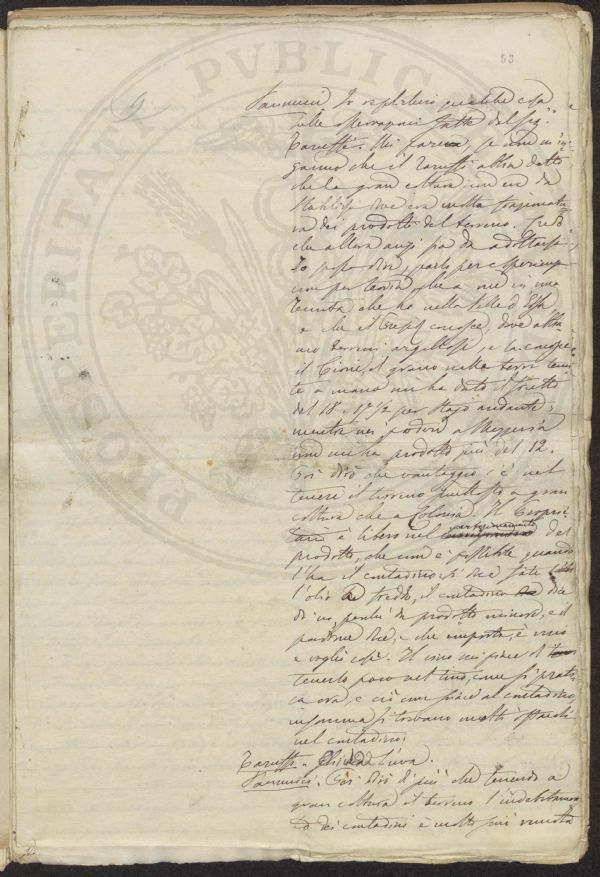 53
9
Vannucci Io expliclerio qualche cosa
sulle osservazioni fatte dal Sig.
Taruffi. Mi pareva, se non m'in=
ganno che il Taruffi abbia detto
che la gran coltura non era da
stabilirsi dove era molta
dei prodotti del terreno. Credo
che allora anzi sia da adottarsi.
Io posso dire, parlo per esperienza
non per teoria, che a me in una
tenuta che ho nella Valle d'
e che il conosce, dove abbia=
mo terreni argillosi, e la conosce
il Cioni, il grano nelle terre tenu=
te a mano mi ha dato il frutto
del 18. 17 1/2 per stajo andante;
mentre nei poderi a Mezzeria
non mi ha prodotto più del 12.
Poi dirò che vantaggio c'è nel
tenere il terreno piuttosto a gran
coltura che a Colonia. Il Proprie=
tario è libero nel perfezionamento del
prodotto, che non è possibile quando
l'ha il contadino; si dice fate
l'olio a freddo, il contadino dice
di no, perchè dà prodotto minore, e il
padrone dice, che importa, è mio
e voglio così. Il vino mi piace di
tenerlo poco nel tino, come si prati=
ca ora, e ciò non piace al contadino
insomma si trovano molti ostacoli
nel contadino.
Taruffi. l'uva.
Vannucci. Poi dirò di più che tenendo a
gran coltura il terreno l'indebitamen=
to dei contadini è molto più remoto
PUBLICAE
PROSPERITATI